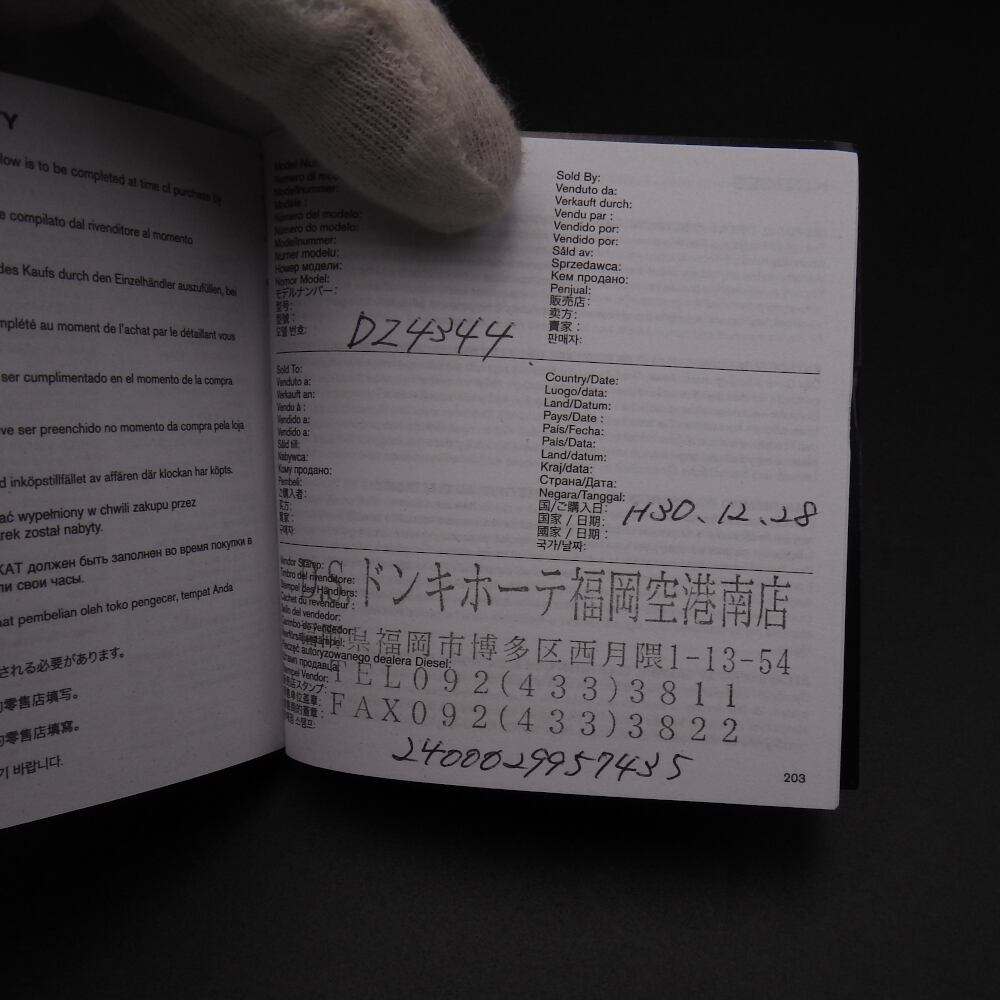 TY
low is to be completed at time of purchase by
e compilato dal rivenditore al momento
des Kaufs durch den Einzelhändler auszufüllen, bei
mplété au moment de l'achat par le détaillant vous
ser cumplimentado en el momento de la compra
ve ser preenchido no momento da compra pela loja
d inköpstillfället av affären där klockan har köpts.
ać wypełniony w chwili zakupu przez
arek został nabyty.
KAT должен быть заполнен во время покупки в
ли свои часы.
at pembelian oleh toko pengecer, tempat Anda
される必要があります。
零售店填写。
零售店填寫。
기 바랍니다.
Model Nu
Numero di mo
Modellnummer:
Modèle :
Número del modelo:
Número do modelo:
Modellnummer:
Numer modelu:
Номер модели:
Nomor Model:
モデルナンバー:
型号:
型號:
모델 번호:
DZ4344
Sold By:
Venduto da:
Verkauft durch:
Vendu par :
Vendido por:
Vendido por:
Såld av:
Sprzedawca:
Кем продано:
Penjual:
販売店:
卖方:
賣家:
판매자:
Sold To:
Venduto a:
Verkauft an:
Vendu à :
Vendido a:
Vendido a:
Såld till:
Nabywca:
Кому продано:
Pembeli:
ご購入者:
买方:
買家:
구매자:
Country/Date:
Luogo/data:
Land/Datum:
Pays/Date :
País/Fecha:
País/Data:
Land/datum:
Kraj/data:
Страна/Дата:
Negara/Tanggal:
国/ご購入日:
国家 / 日期:
國家 / 日期:
국가/날짜:
H30、12、28
Vendor Stamp:
Timbro del rivenditore:
Stempel des Händlers:
Cachet du revendeur :
Sello del vendedor:
Carimbo do vendedor:
Återförsäljarstämpel:
Pieczęć autoryzowanego dealera Diesel:
Штамп продавца:
Stempel Vendor:
販売店スタンプ:
S.ドンキホーテ福岡空港南店
県福岡市博多区西月隈1-13-54
TEL092(433)3811
FAX092(433)3822
2400029957435
203